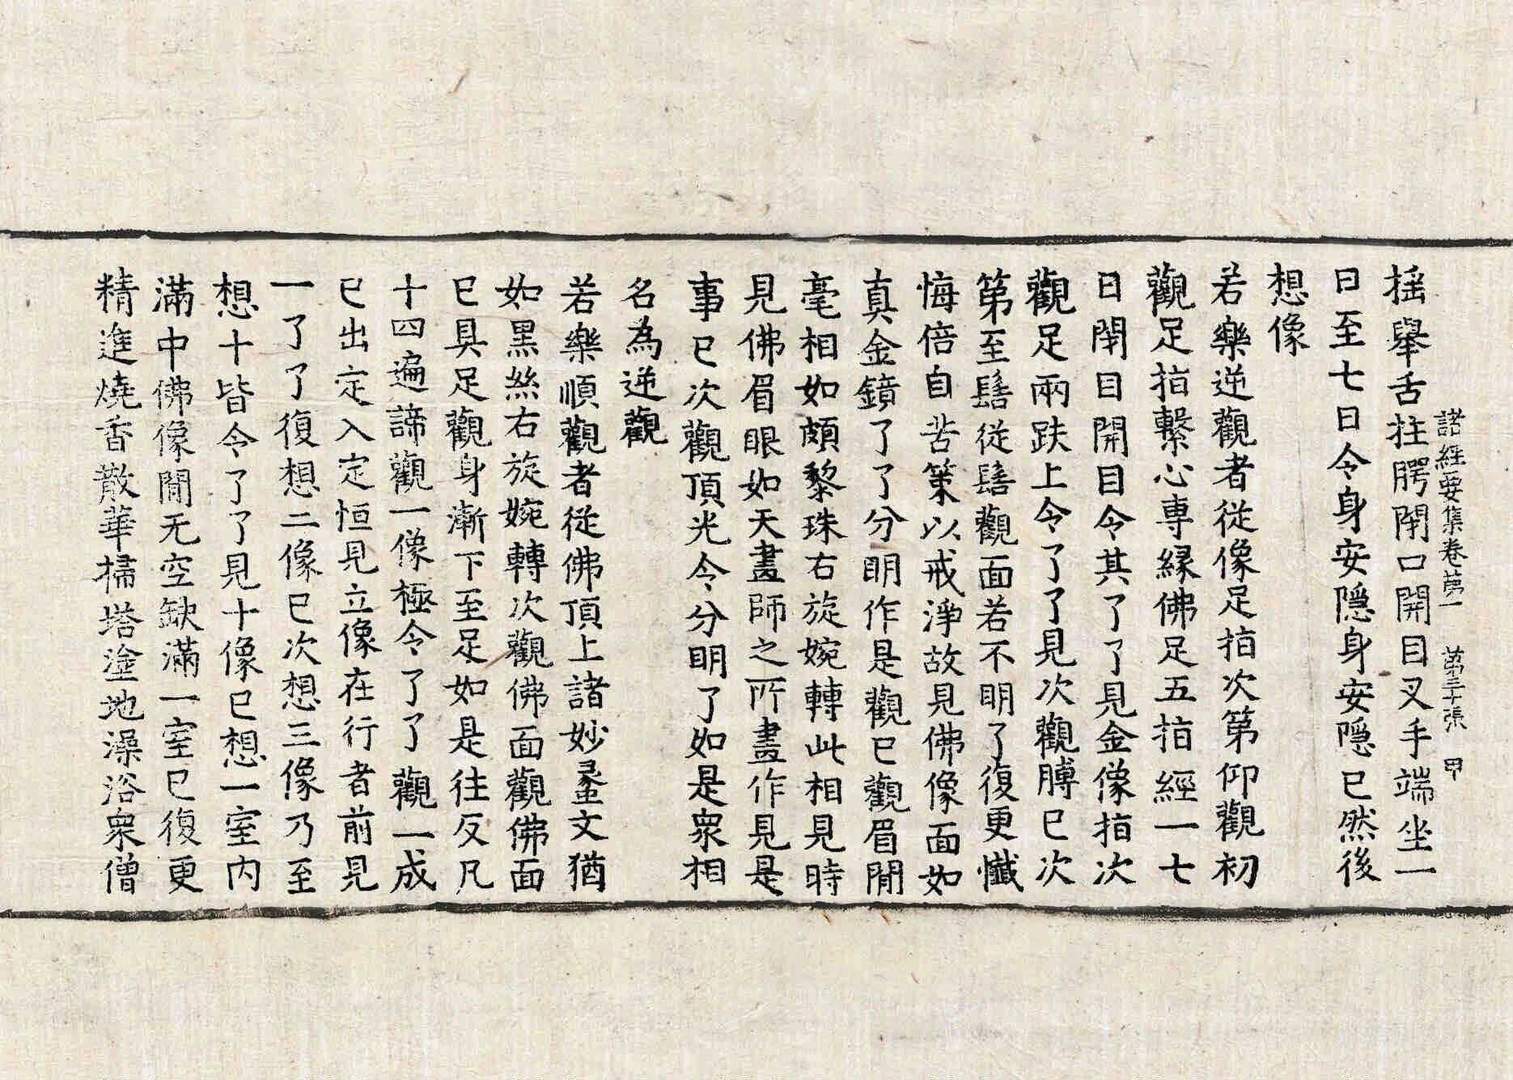 諸經要集卷苐一 第三十張 甲
揺舉舌拄腭閇口開目叉手端坐一
日至七日令身安隱身安隱已然後
想像
若樂逆觀者從像足指次第仰觀初
觀足指繫心専縁佛足五指經一七
日閇目開目令其了了見金像指次
觀足兩趺上令了了見次觀膊已次
第至髻從髻觀面若不明了復更懺
悔倍自苦策以戒淨故見佛像面如
真金鏡了了分明作是觀已觀眉間
毫相如頗黎珠右旋婉轉此相見時
見佛眉眼如天畫師之所畫作見是
事已次觀頂光令分明了如是衆相
名為逆觀
若樂順觀者從佛頂上諸妙蠡文猶
如黑絲右旋婉轉次觀佛面觀佛面
已具足觀身漸下至足如是往反凡
十四遍諦觀一像極令了了觀一成
已出定入定恒見立像在行者前見
一了了復想二像已次想三像乃至
想十皆令了了見十像已想一室内
滿中佛像間无空缺滿一室已復更
精進燒香散華掃塔塗地澡浴衆僧